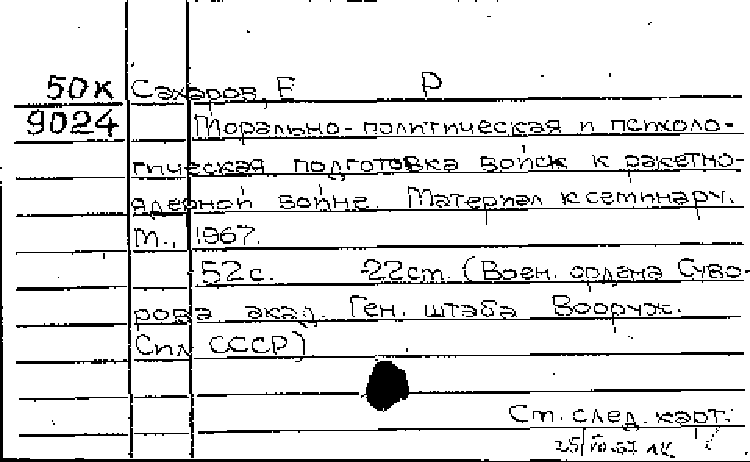 50к Сахаров, Е Р
9024 Морально-политическая и психоло-
гическая подготовка войск к ракетно-
ядерной войне. Материал к семинару.
М., 1967.
52с. 22см. (Воен. ордена Суво-
рова акад. Ген. штаба Вооруж.
Сил СССР)
См. след. карт.